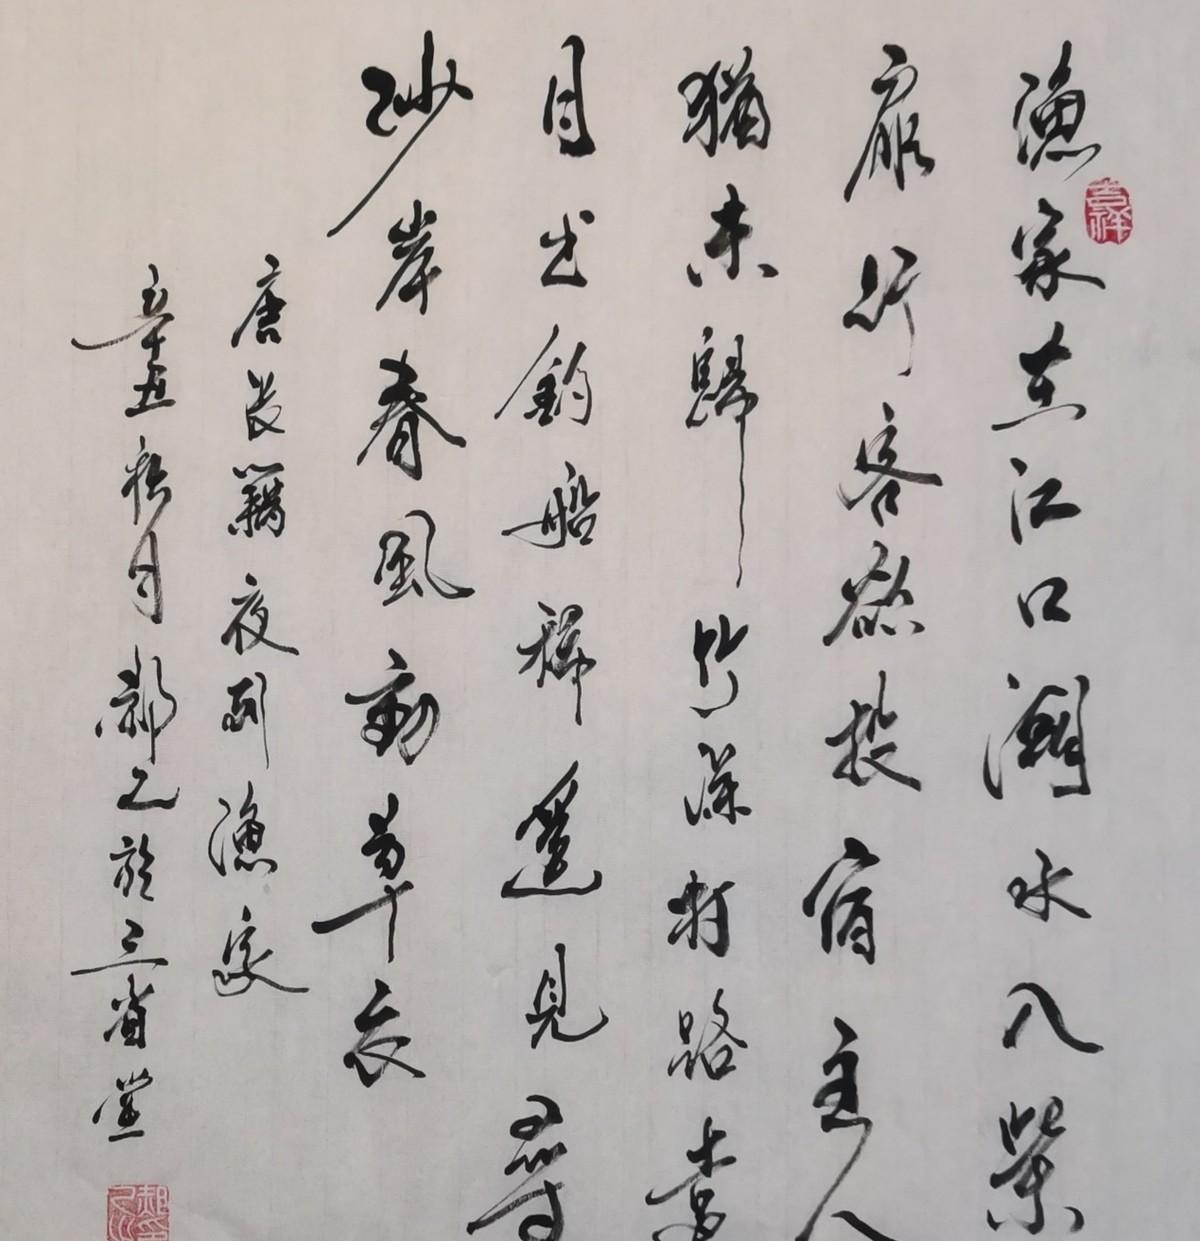 漁家在江口潮水入柴
吉祥
扉行客欲投宿主人
猶未歸竹深村路遠
月出釣船稀遥見尋
沙岸春風動草衣
唐張籍夜到漁家
辛丑月郝於三省堂